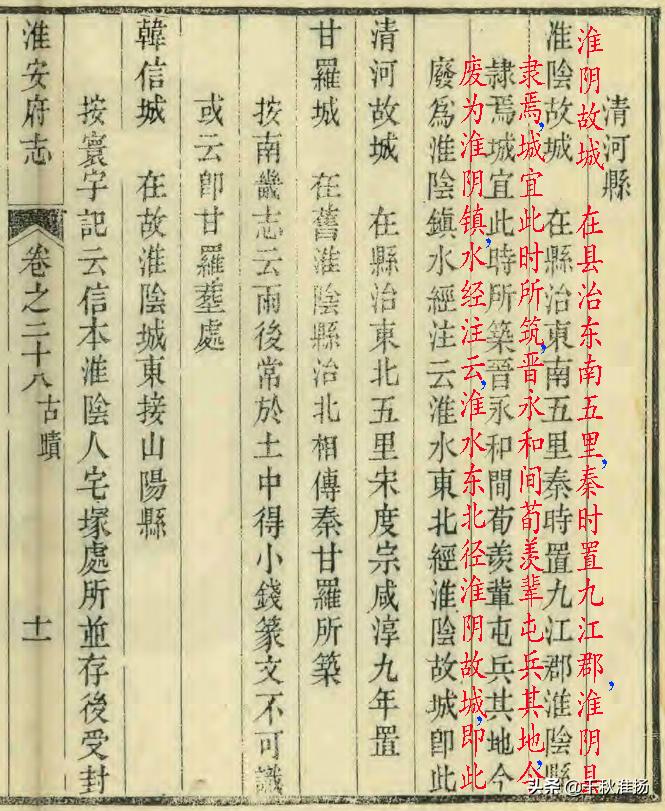 清河縣
淮阴故城 在县治东南五里,秦时置九江郡,淮阴县
淮陰故城 在縣治東南五里秦時置九江郡淮陰縣
隶焉,城宜此时所筑,晋永和间荀羡辈屯兵其地,今
隸焉城宜此時所築晉永和間荀羨軰屯兵其地今
废为淮阴镇,水经注云,淮水东北径淮阴故城,即此
廢爲淮陰鎮水經注云淮水東北經淮陰故城卽此
清河故城 在縣治東北五里宋度宗咸淳九年置
甘羅城 在舊淮陰縣治北相傳秦甘羅所築
按南畿志云雨後常於土中得小錢篆文不可識
或云卽甘羅塟處
韓信城 在故淮陰城東接山陽縣
按寰宇記云信本淮陰人宅塚處所並存後受封
淮安府志 卷之二十八 古蹟 十一
头条 @千秋淮扬